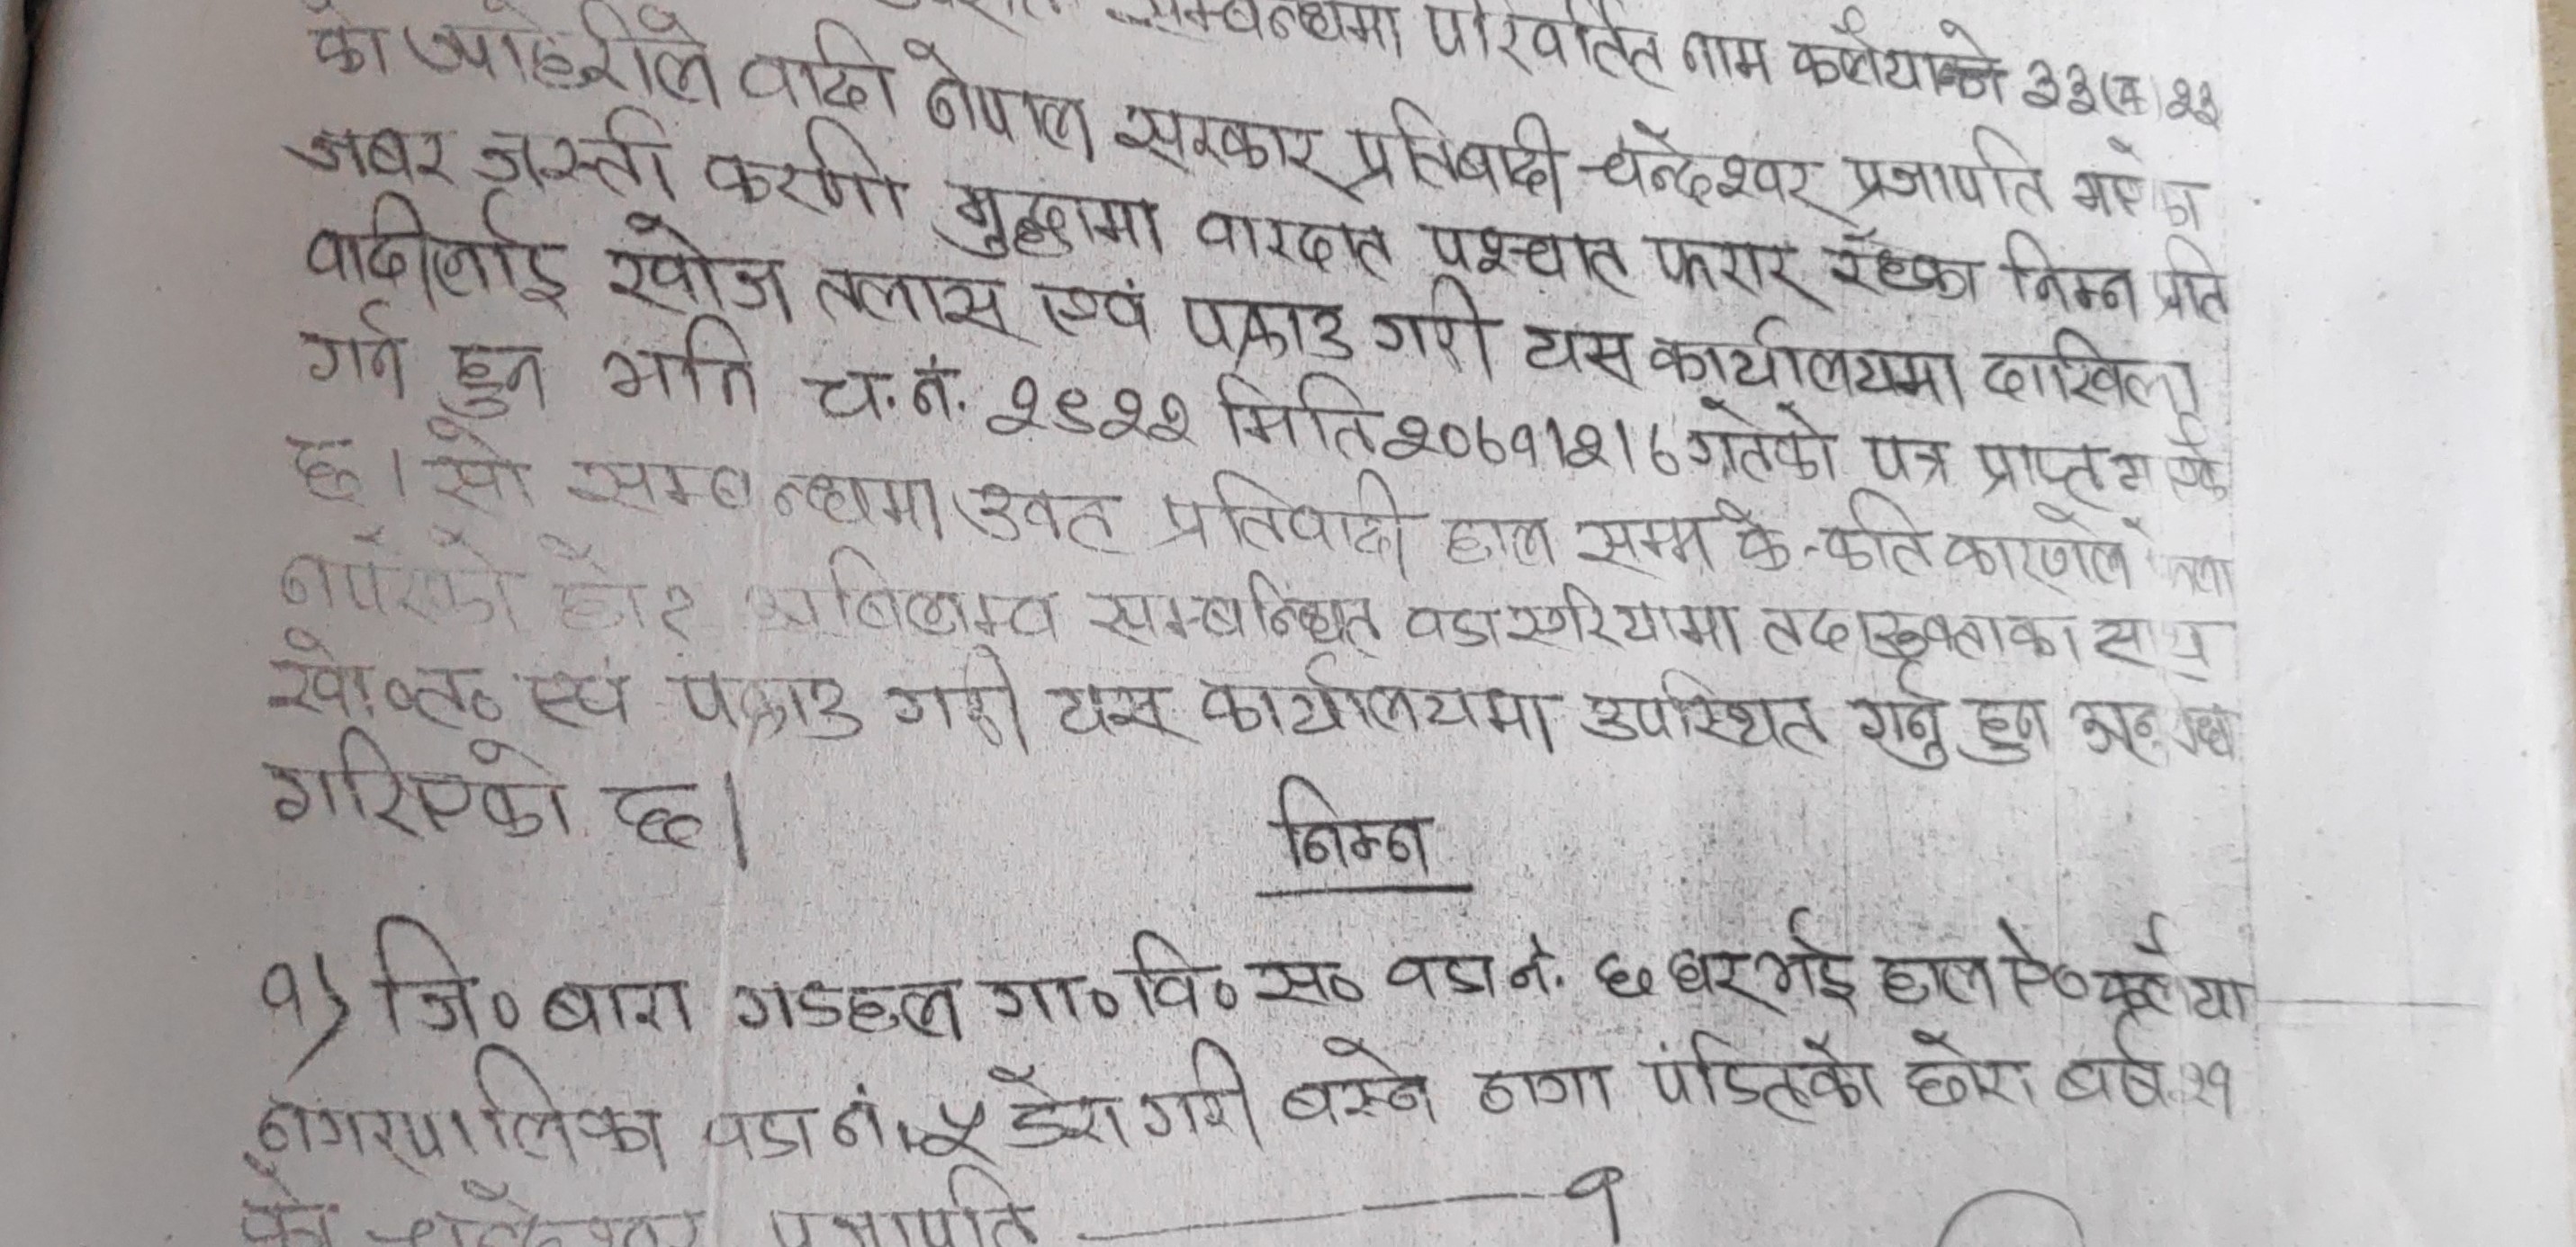 सम्बन्धमा परिवर्तित नाम कलैयाको 33(क)23
को जाहेरीले वादी नेपाल सरकार प्रतिबादी चन्देश्वर प्रजापति भएको
जबर जस्ती करणी मुद्दामा वारदात पश्चात फरार रहेका निम्न प्रति
वादीलाई खोज तलास एवं पक्राउ गरी यस कार्यालयमा दाखिला
गर्न हुन भनि च.नं. २९२२ मिति २०७१।२।७ गतेको पत्र प्राप्त
छ। सो सम्बन्धमा उक्त प्रतिवादी हाल सम्म के-कति कारणले
नपरेको हो? अबिलम्व सम्बन्धित वडा एरियामा तदारुकताका साथ
खो०त० एवं पक्राउ गरी यस कार्यालयमा उपस्थित गर्नु हुन अनुरोध
गरिएको छ।
निम्न
१) जि० बारा गडहल गा० वि० स० वडा नं. ६ घर भई हाल ऐ० कलैया
नगरपालिका वडा नं. ५ डेरा गरी बस्ने नागा पंडितको छोरा बर्ष २१
को चन्देश्वर प्रजापति ——— १